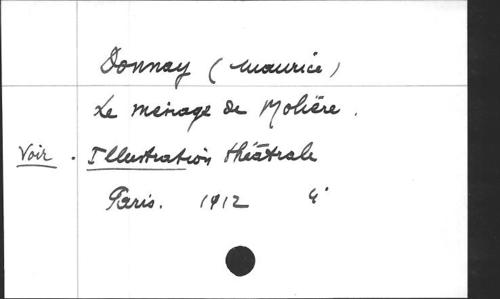 Donnay (Maurice)
Le ménage de Molière.
Voir. Illustration théâtrale
Paris. 1912 4°